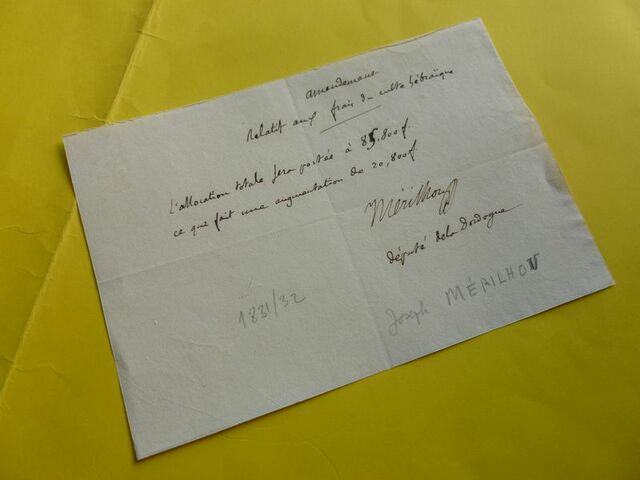 amendement
Relatif aux frais du culte hébraïque
L'allocation totale sera portée à 85,800f
ce que fait une augmentation de 20,800f.
Mérilhou
député dela Dordogne
1831/32
Joseph MÉRILHOU